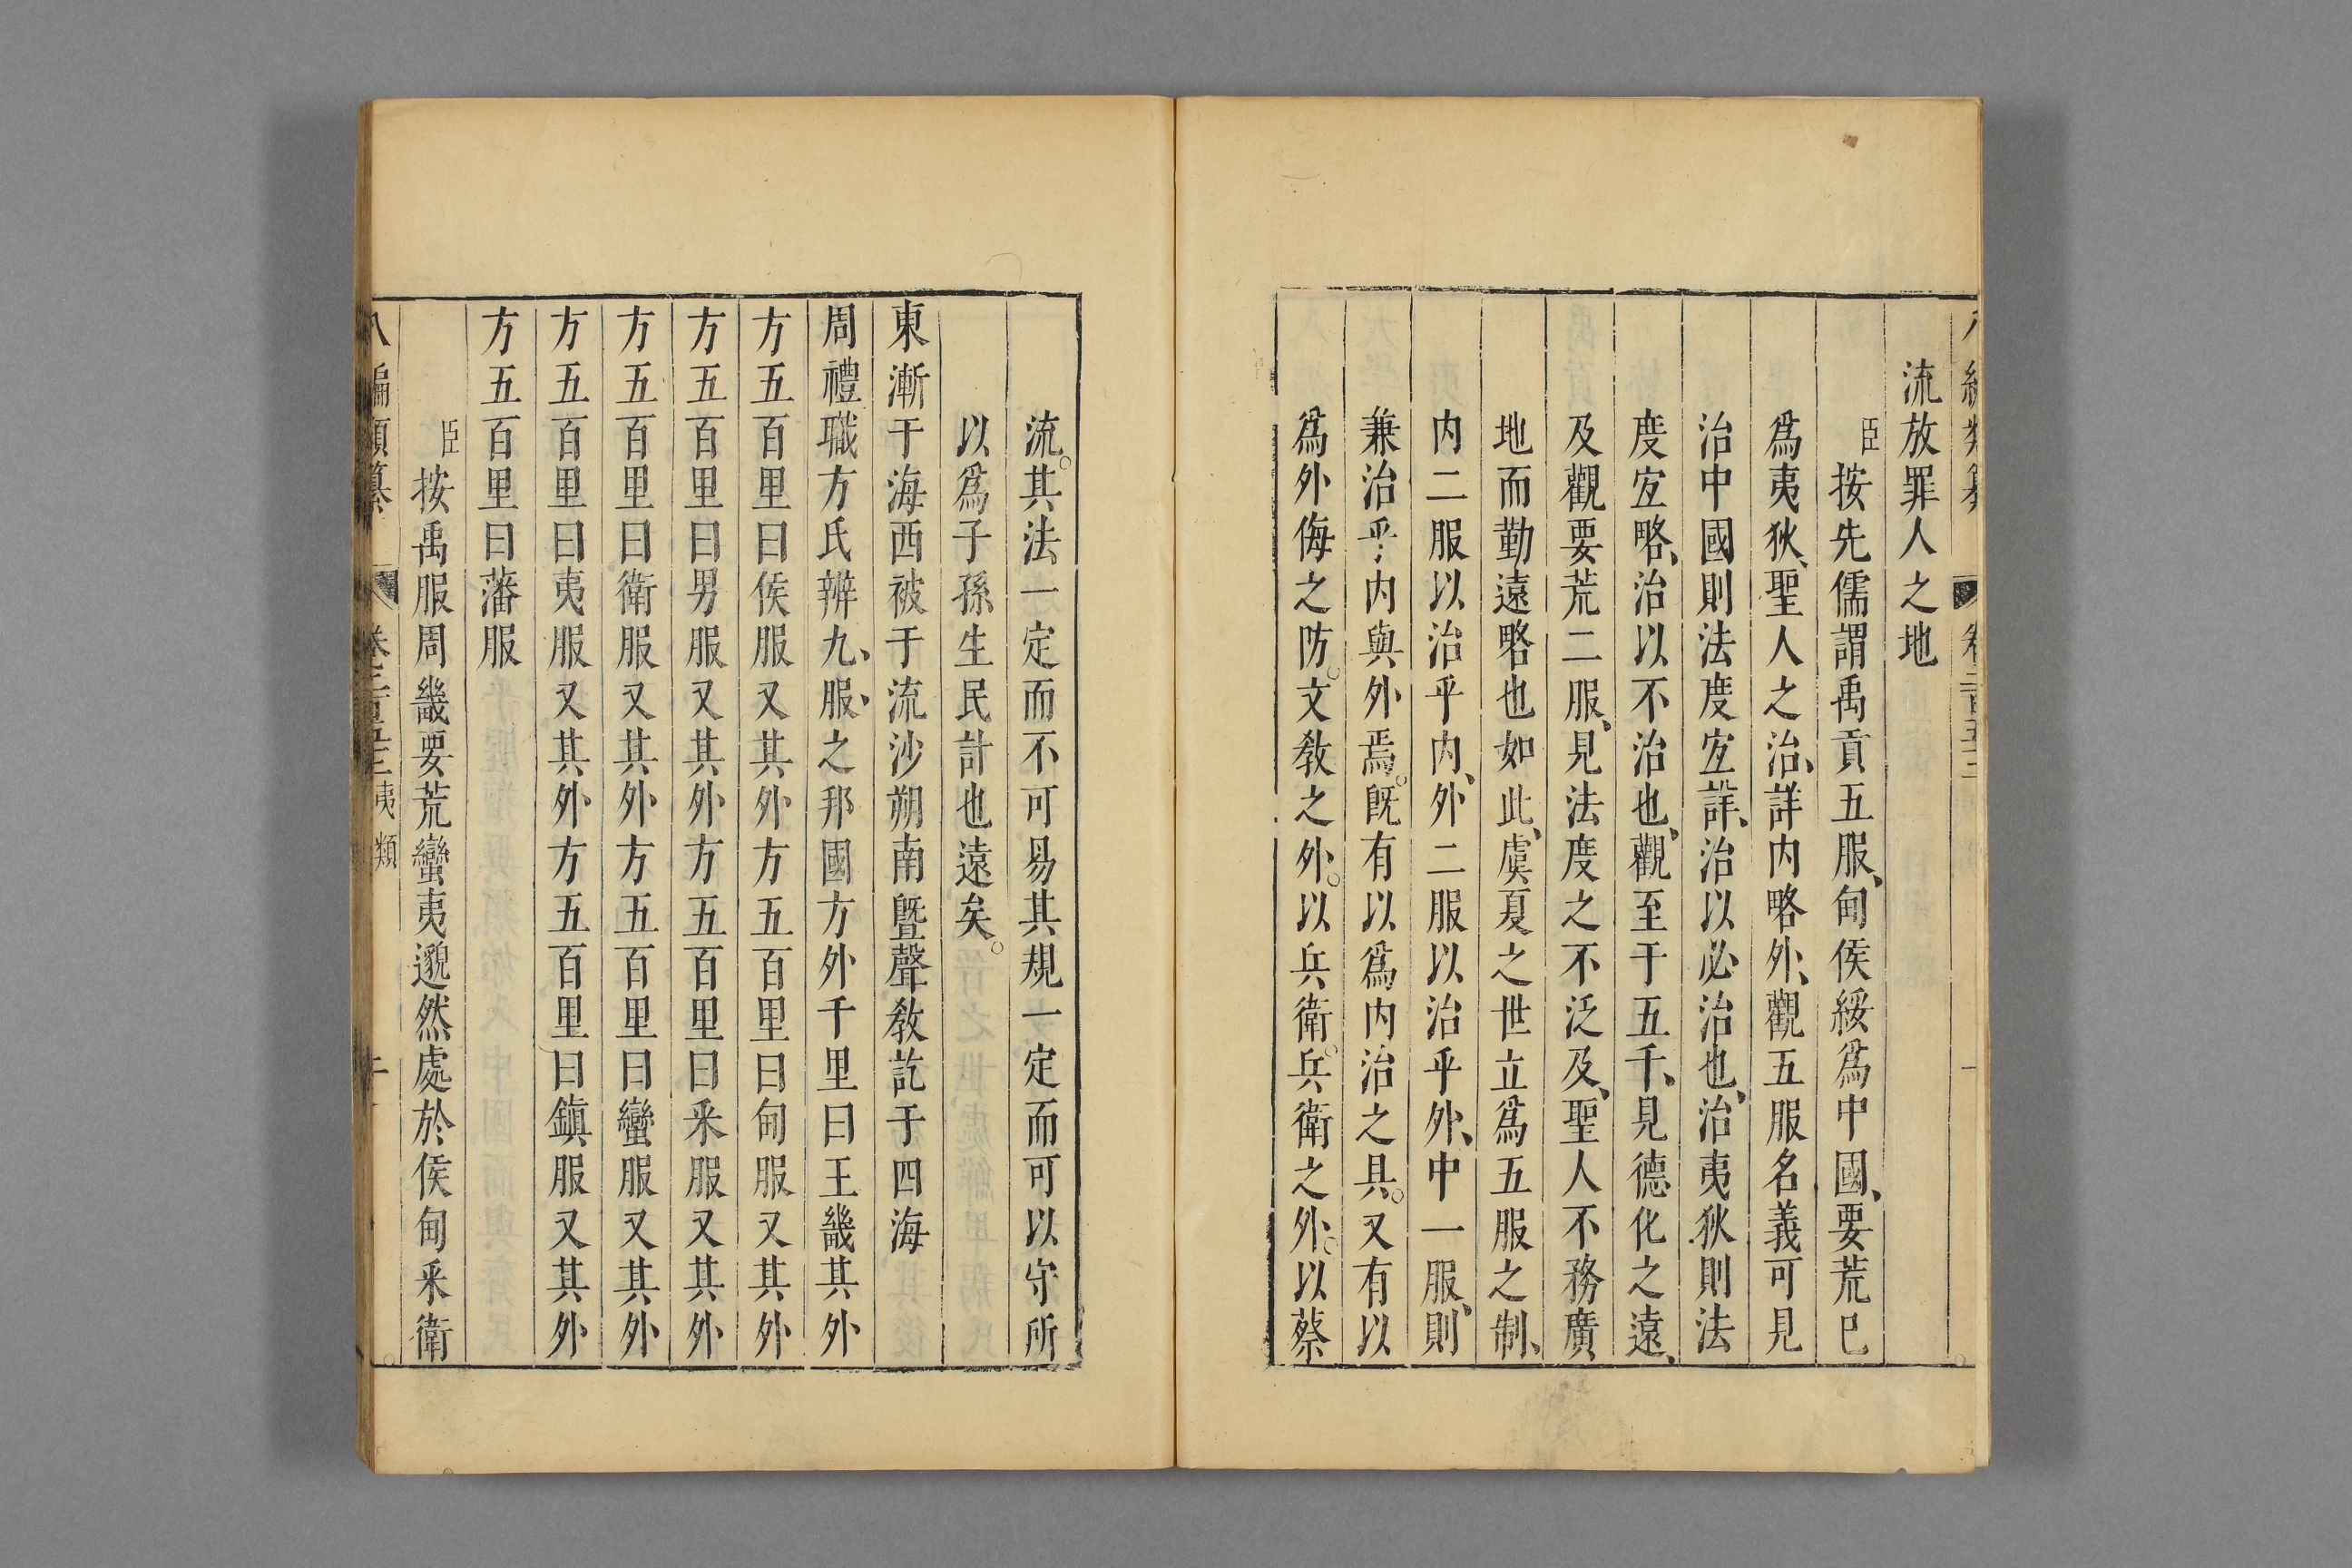 流放罪人之地
臣按先儒謂禹貢五服、甸侯綏爲中國、要荒已
爲夷狄、聖人之治、詳内略外、觀五服名義可見
治中國則法度宐詳、治以必治也、治夷狄則法
度宐略、治以不治也、觀至于五千、見德化之遠、
及觀要荒二服、見法度之不泛及、聖人不務廣
地而勤遠略也如此、虞夏之世立爲五服之制、
内二服以治乎内、外二服以治乎外、中一服、則
兼治乎内與外焉。旣有以爲内治之具。又有以
爲外侮之防。文敎之外。以兵衛。兵衛之外。以蔡
流。其法一定而不可易其規一定而可以守所
以爲子孫生民計也遠矣。
東漸于海西被于流沙朔南曁聲敎訖于四海
周禮職方氏辨九、服、之邦國方外千里曰王畿其外
方五百里曰侯服又其外方五百里曰甸服又其外
方五百里曰男服又其外方五百里曰采服又其外
方五百里曰衛服又其外方五百里曰蠻服又其外
方五百里曰夷服又其外方五百里曰鎮服又其外
方五百里曰藩服
臣按禹服周畿要荒蠻夷邈然處於侯甸采衛
八編類纂 卷二百五十三 夷類